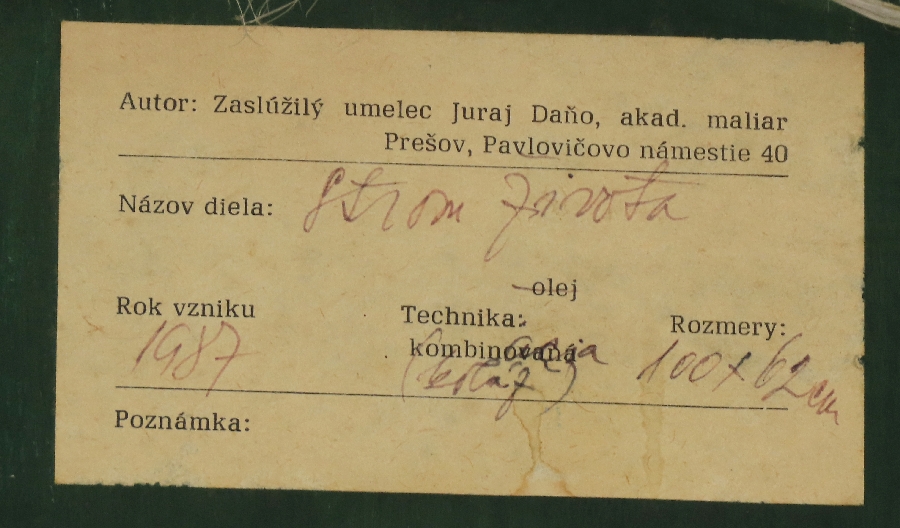 Autor: Zaslúžilý umelec Juraj Daňo, akad. maliar
Prešov, Pavlovičovo námestie 40
Názov diela: Strom života
olej
Rok vzniku Technika: Rozmery:
1987 kombinovaná 100 x 62 cm
Poznámka: